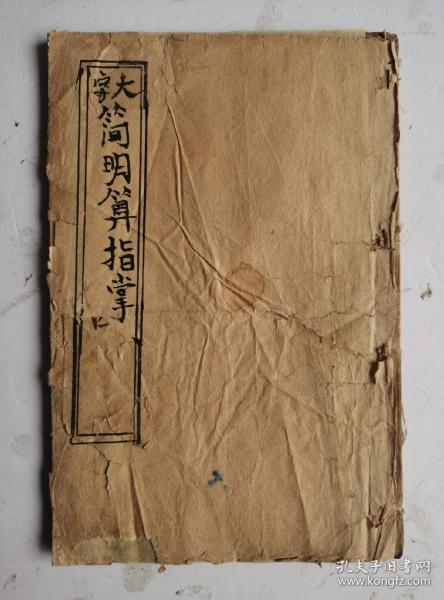 大字
简明算指掌
孔夫子旧书网
www.kongfz.com